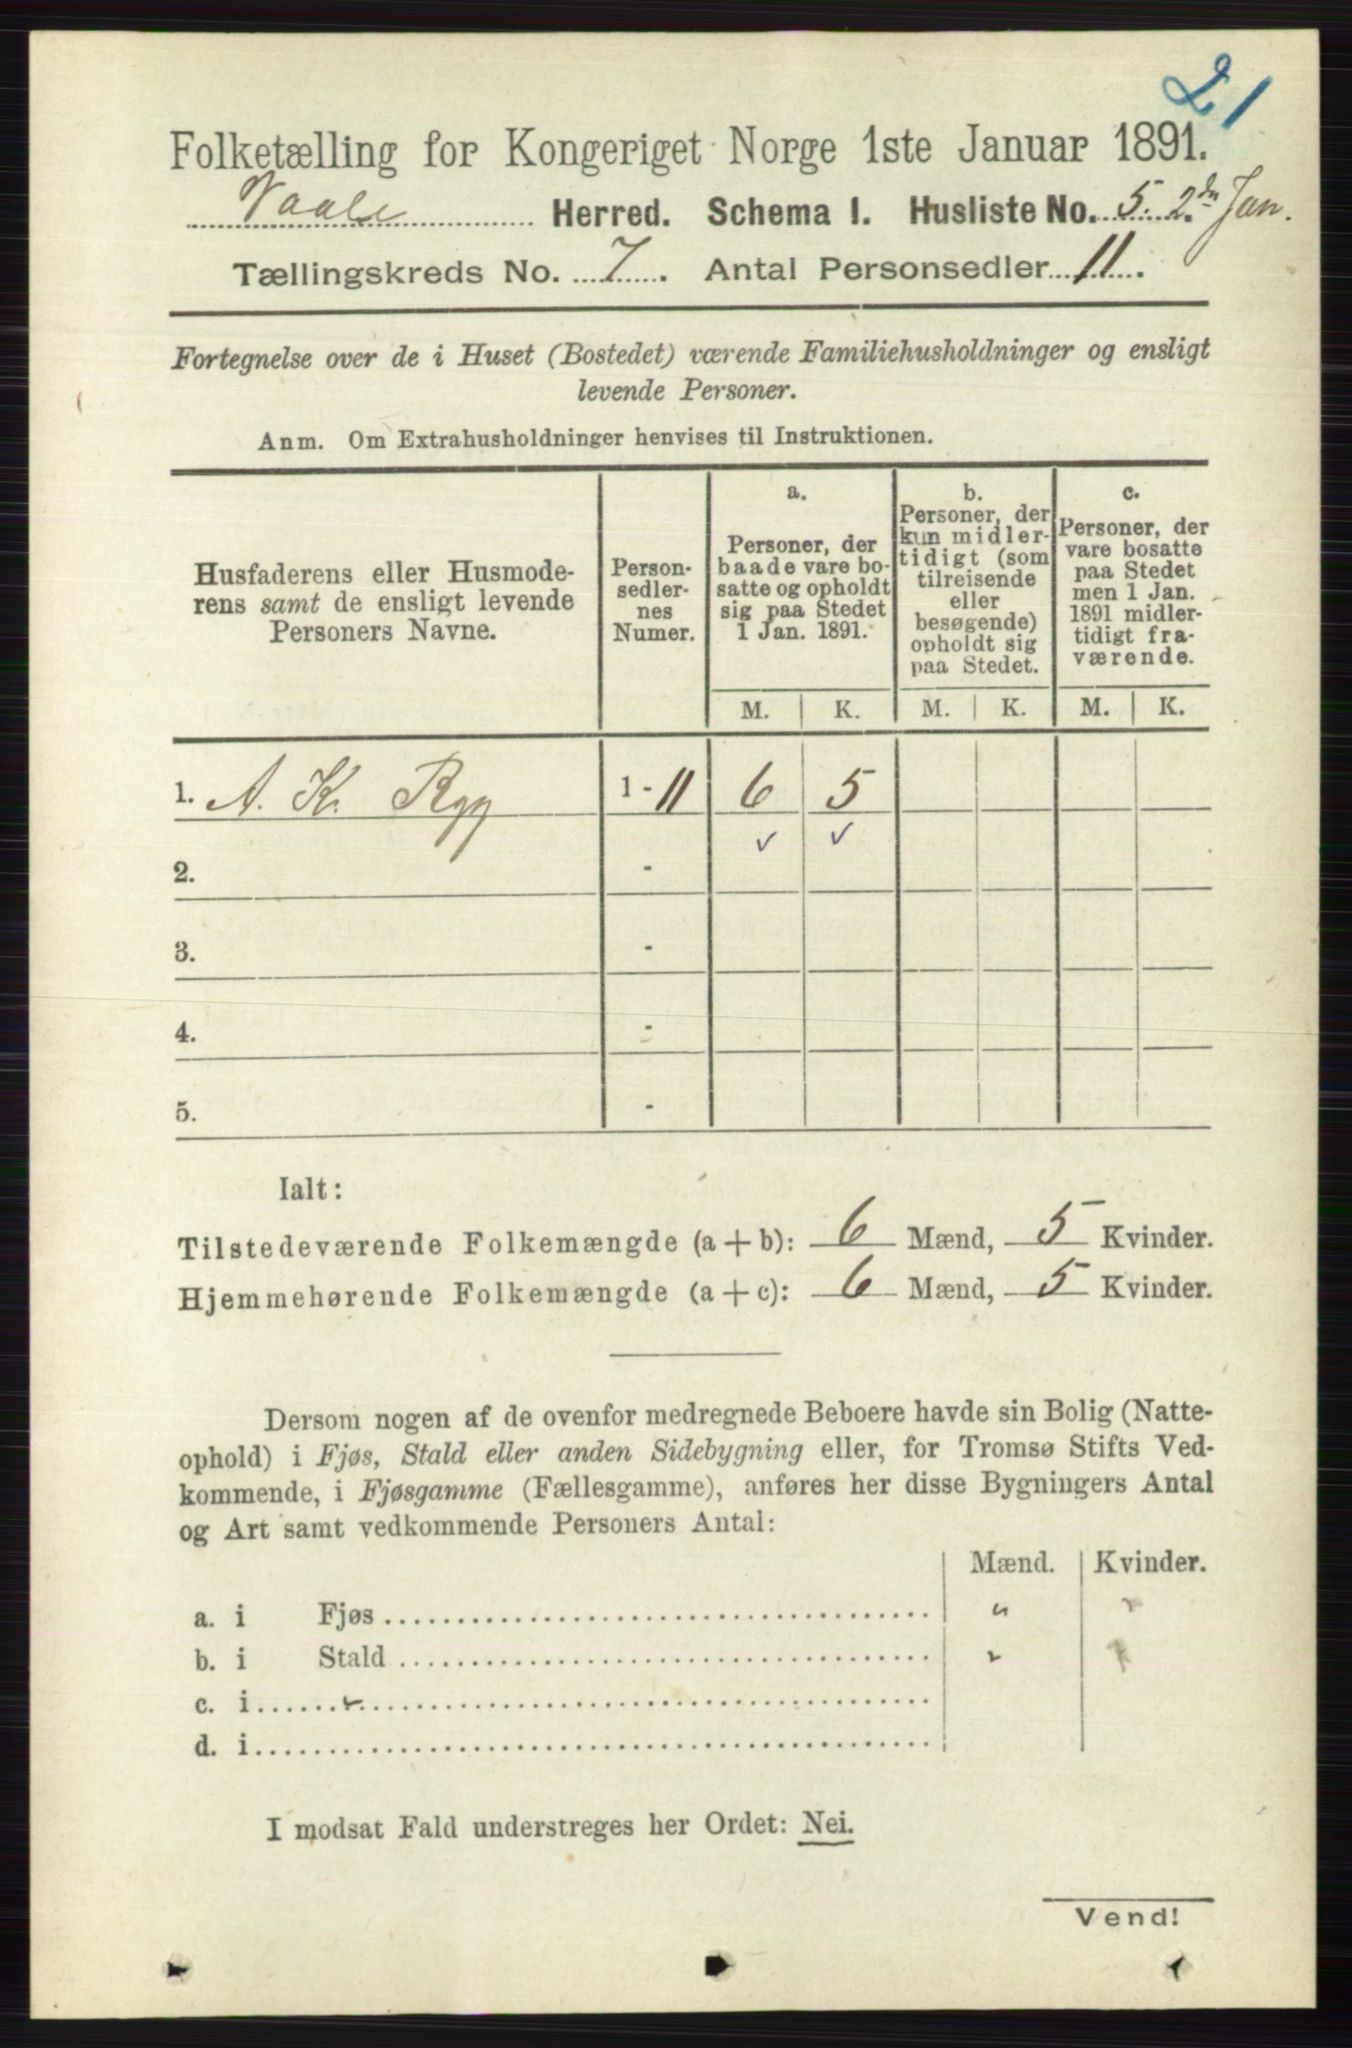 21
Folketælling for Kongeriget Norge 1ste Januar 1891.
Vaale Herred. Schema I. Husliste No. 5. 2den Jan.
Tællingskreds No. 7. Antal Personsedler 11.
Fortegnelse over de i Huset (Bostedet) værende Familiehusholdninger og ensligt
levende Personer.
Anm. Om Extrahusholdninger henvises til Instruktionen.
Husfaderens eller Husmode-
rens samt de ensligt levende
Personers Navne.
Person-
sedler-
nes
Numer.
a.
Personer, der
baade vare bo-
satte og opholdt
sig paa Stedet
1 Jan. 1891.
b.
Personer, der
kun midler-
tidigt (som
tilreisende
eller
besøgende)
opholdt sig
paa Stedet.
c.
Personer, der
vare bosatte
paa Stedet
men 1 Jan.
1891 midler-
tidigt fra-
værende.
M. K. M. K. M. K.
1. A. K. Rygg 1 - 11 6 5
✓ ✓
2. -
3. -
4. -
5. -
Ialt:
Tilstedeværende Folkemængde (a + b): 6 Mænd, 5 Kvinder.
Hjemmehørende Folkemængde (a + c): 6 Mænd, 5 Kvinder.
Dersom nogen af de ovenfor medregnede Beboere havde sin Bolig (Natte-
ophold) i Fjøs, Stald eller anden Sidebygning eller, for Tromsø Stifts Ved-
kommende, i Fjøsgamme (Fællesgamme), anføres her disse Bygningers Antal
og Art samt vedkommende Personers Antal:
Mænd. Kvinder.
a. i Fjøs " "
b. i Stald " "
c. i "
d. i
I modsat Fald understreges her Ordet: Nei.
Vend!